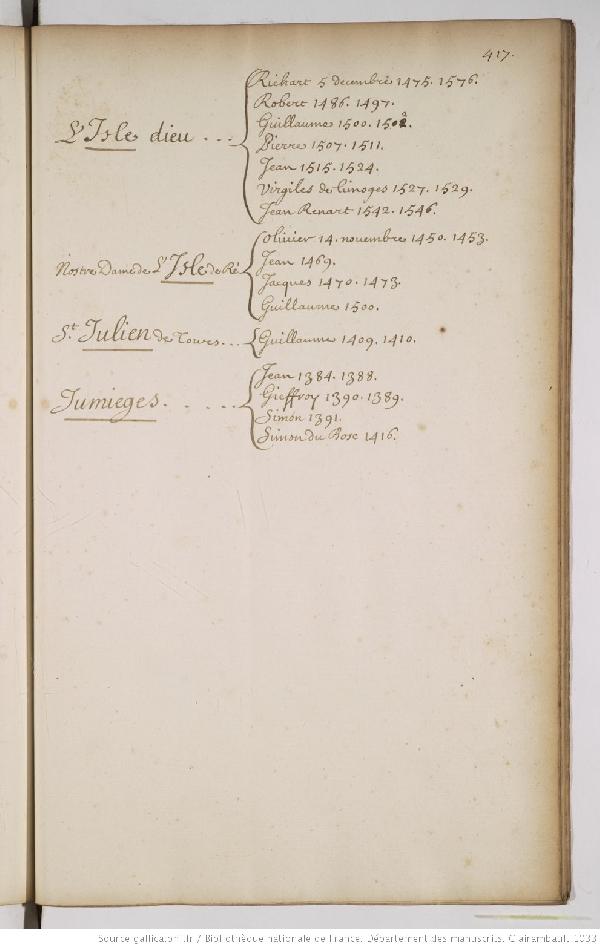 417.
L'Isle dieu ...
Richart 5 decembre 1475. 1576.
Robert 1486. 1497.
Guillaume 1500. 1502.
Pierre 1507. 1511.
Jean 1515. 1524.
Virgiles de limoges 1527. 1529.
Jean Renart 1542. 1546.
Nostre Dame de L'Isle de Ré
Olivier 14. novembre 1450. 1453.
Jean 1469.
Jacques 1470. 1473.
Guillaume 1500.
St. Julien de Tours...
Guillaume 1409. 1410.
Jumieges. . . . .
Jean 1384. 1388.
Gieffroy 1390. 1389.
Simon 1391.
Simon du Bosc 1416.
Source gallica.bnf.fr / Bibliothèque nationale de France. Département des manuscrits. Clairambault 1033